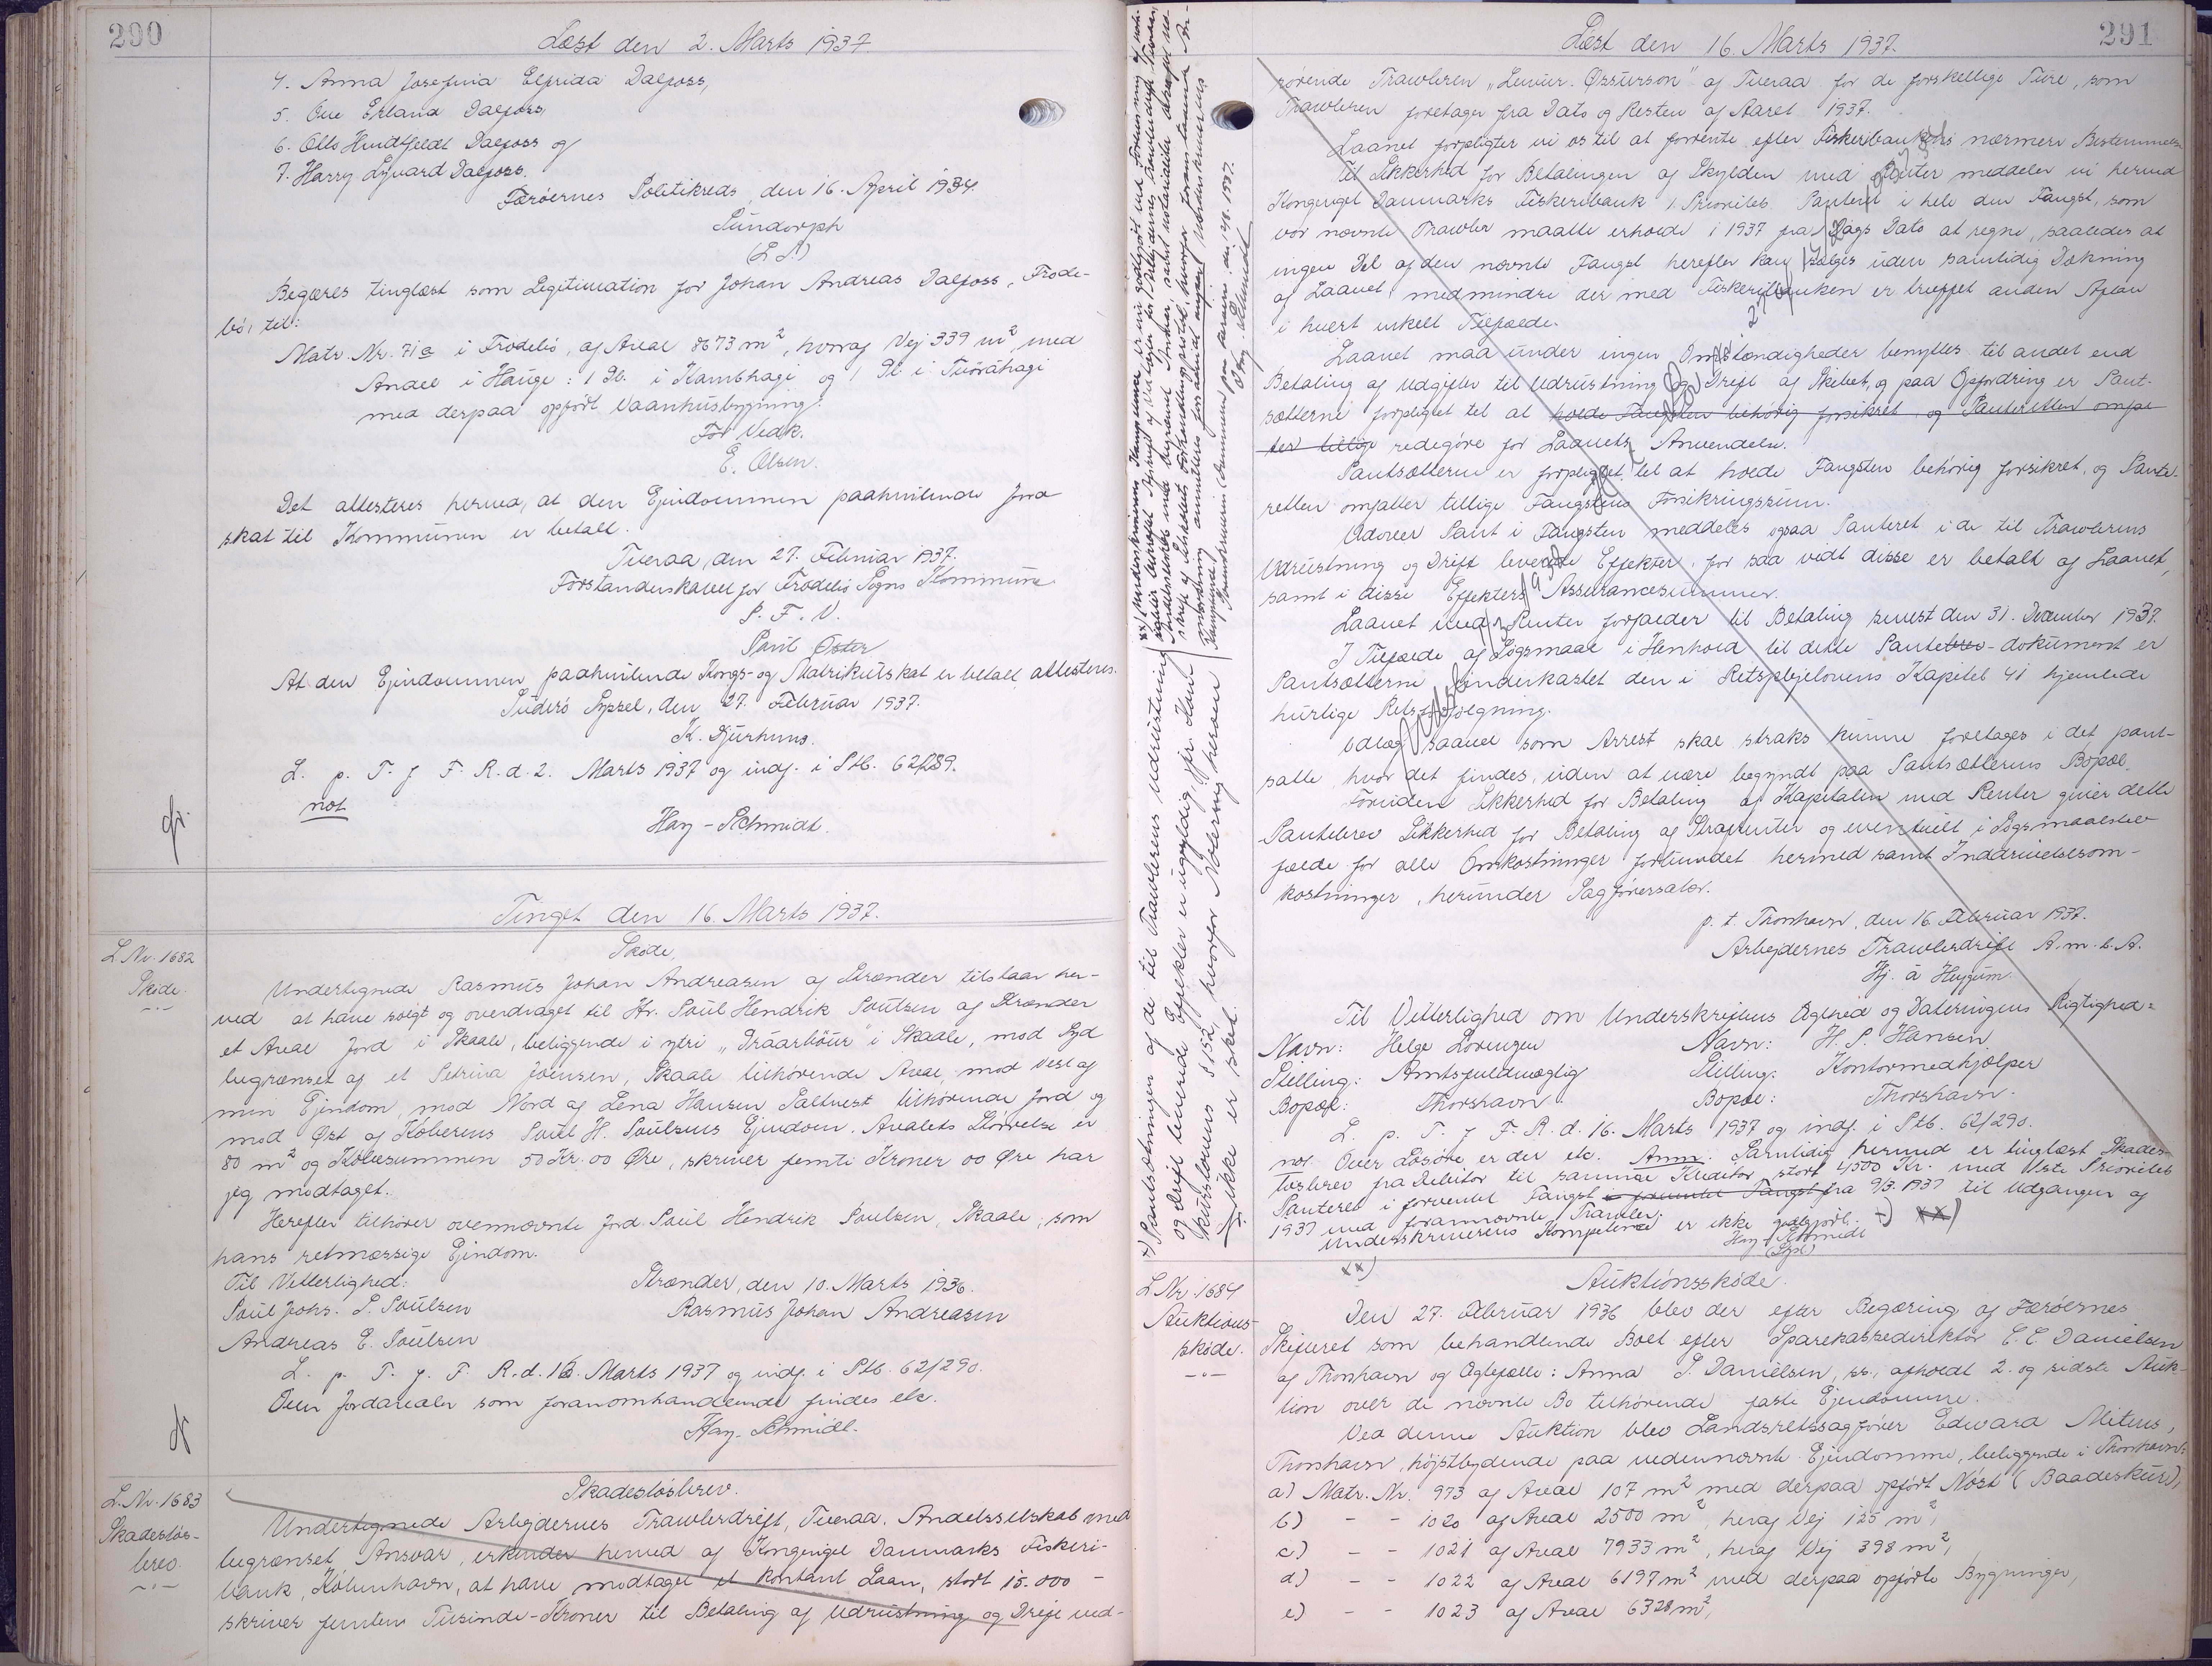 290
Læst den 2. Marts 1937
4. Anna Josefina Elfrida Dalfoss,
5. Ove Erland Dalfoss,
6. Otto Huidtfeldt Dalfoss og
7. Harry Lyvard Dalfoss.
Færöernes Politikreds, den 16. April 1934.
Lundorph
(L.S.)
Begæres tinglæst som Legitimation for Johan Andreas Dalfoss, Frode-
bö, til:
Matr. Nr. 71a i Frodebö, af Areal 8673 m², hvoraf Vej 339 m², med
Andel i Hauge: 1 Pl. i Kambhagi og 1 Pl. i Tüvráhagi
med derpaa opfört Vaanhusbygning.
For Vedk.
E. Olsen.
Det attesteres herved, at den Ejendommen paahvilende Jord
skat til Kommunen er betalt.
Tveraa, den 27. Februar 1937.
Forstanderskabet for Frodebö Sogns Kommune
P. F. V.
Poul Öster
At den Ejendommen paahvilende Kongs- og Matrikulskat er betalt, attesteres.
Suderö Syssel, den 27. Februar 1937.
K. Djurhuus.
L. p. T. f F. R. d. 2. Marts 1937 og indf. i Stb. 62/289.
not
Hay-Schmidt.
Tinget den 16. Marts 1937.
L. Nr. 1682
Sköde.
Sköde.
Undertegnede Rasmus Johan Andreasen af Strænder tilstaar her-
ved at have solgt og overdraget til Hr. Poul Hendrik Poulsen af Strænder
et Areal Jord i Skaale, beliggende i ytri "Práarböur" i Skaale, mod Syd
begrænset af et Petrina Joensen, Skaale tilhörende Areal, mod Vest af
min Ejendom, mod Nord af Lena Hansen Saltvest tilhörende Jord og
mod Øst af Köberens Poul H. Poulsens Ejendom. Arealets Störrelse er
80 m² og Köbesummen 50 Kr. 00 Øre, skriver femti Kroner 00 Øre har
jeg modtaget.
Herefter tilhörer ovennævnte Jord Poul Hendrik Poulsen, Skaale, som
hans retmæssige Ejendom.
Til Vitterlighed:
Strænder, den 10. Marts 1936.
Poul Johs. P. Poulsen
Rasmus Johan Andreasen
Andreas E. Poulsen
L. p. T. f. F. R. d. 16. Marts 1937 og indf. i Stb. 62/290.
Over Jordarealer som foranomhandlende findes etc.
Hay-Schmidt.
L. Nr. 1683
Skadeslös-
brev.
Skadeslösbrev.
Undertegnede Arbejdernes Trawlerdrift, Tveraa, Andelsselskab med
begrænset Ansvar, erkender herved af Kongeriget Danmarks Fiskeri-
bank, Köbenhavn, at have modtaget et kontant Laan, stort 15.000 -
skriver femten Tusinde - Kroner til Betaling af Udrustning og Drift ved-
291
Læst den 16. Marts 1937.
rörende Trawleren "Leivur Øssurson" af Tveraa for de forskellige Ture, som
Trawleren foretager fra Dato og Resten af Aaret 1937.
Laanet forpligter vi os til at forrente efter Fiskeribankens nærmere Bestemmelse
Til Sikkerhed for Betalingen af Skylden med Renter meddeler vi herved
Kongeriget Danmarks Fiskeribank 1. Prioritets Panteret i hele den Fangst, som
vor nævnte Trawler maatte erholde i 1937 fra Dags Dato at regne, saaledes at
ingen Del af den nævnte Fangst herefter kan sælges uden samtidig Dækning
af Laanet, medmindre der med Fiskeribanken er truffet anden Aftale
i hvert enkelt Tilfælde.
Laanet maa under ingen Omstændigheder benyttes til andet end
Betaling af Udgifter til Udrustning og Drift af Skibet, og paa Opfordring er Pant-
sætterne forpligtet til at holde Fangsten behörig forsikret og Panteretten omfat-
ter tillige redegöre for Laanets Anvendelse.
Pantsætteren er forpligtet til at holde Fangsten behörig forsikret, og Pante-
retten omfatter tillige Fangstens Forsikringssum.
Udover Pant i Fangsten meddeles ogsaa Panteret i de til Trawlerens
Udrustning og Drift leverede Effekter, for saa vidt disse er betalt af Laanet,
samt i disse Effekters Assurancesummer.
Laanet med Renter forfalder til Betaling senest den 31. December 1937.
I Tilfælde af Sögsmaal i Henhold til dette Pantebrev-dokument er
Pantsætterne underkastet den i Retsplejelovens Kapitel 41 hjemlede
hurtige Retsforfölgning.
Udlæg saavel som Arrest skal straks kunne foretages i det pant-
satte, hvor det findes, uden at være begyndt paa Pantsætterens Bopæl.
Foruden Sikkerhed for Betaling af Kapitalen med Renter giver dette
Pantebrev Sikkerhed for Betaling af Strafrenter og eventuelt i Sögsmaalstil-
fælde for alle Omkostninger forbundet hermed samt Inddrivelsesom-
kostninger, herunder Sagförersalær.
p. t. Thorshavn, den 16. Februar 1937.
Arbejdernes Trawlerdrift A. m. b. A.
Hj. á Heygum
Til Vitterlighed om Underskriftens Ægthed og Dateringens Rigtighed:
Navn: Helge Lorenzen Navn: H. P. Hansen
Stilling: Amtsfuldmægtig Stilling: Kontormedhjælper
Bopæl: Thorshavn. Bopæl: Thorshavn.
L. p. T. f F. R. d. 16. Marts 1937 og indf. i Stb. 62/290.
not. Over Lösöre er der etc. Anm. Samtidig hermed er tinglæst Skades-
lösbrev fra Debitor til samme Kreditor stort 4500 Kr. med 1ste Prioritets
Panteret i forventet Fangst i forventet Fangst fra 9/3. 1937 til Udgangen af
1937 med forannævnte Trawler.
Underskriverens Kompetence er ikke godtgjort. +) xx)
Hay-Schmidt
xx)
+) Pantsætningen af de til Trawlerens Udrustning
og Drift leverede Effekter er ugyldig, jfr. Kon-
kurslovens § 152, hvorfor Notering herom
ikke er sket.
L. Nr. 1684
Auktions-
sköde.
Auktionssköde.
Den 27. Februar 1936 blev der efter Begæring af Færöernes
Skifteret som behandlende Boet efter Sparekassedirektör E. E. Danielsen
af Thorshavn og Ægtefælle: Anna S. Danielsen, ss., afholdt 2. og sidste Auk-
tion over de nævnte Bo tilhörende faste Ejendomme.
Ved denne Auktion blev Landsretssagförer Edward Mitens,
Thorshavn, höjstbydende paa nedennævnte Ejendomme, beliggende i Thorshavn:
a) Matr. Nr. 973 af Areal 107 m² med derpaa opfört Nöst (Baadeskur),
b) - - 1020 af Areal 2500 m², heraf Vej 125 m²,
c) - - 1021 af Areal 7933 m², heraf Vej 398 m²,
d) - - 1022 af Areal 6197 m² med derpaa opförte Bygninger,
e) - - 1023 af Areal 6328 m²,